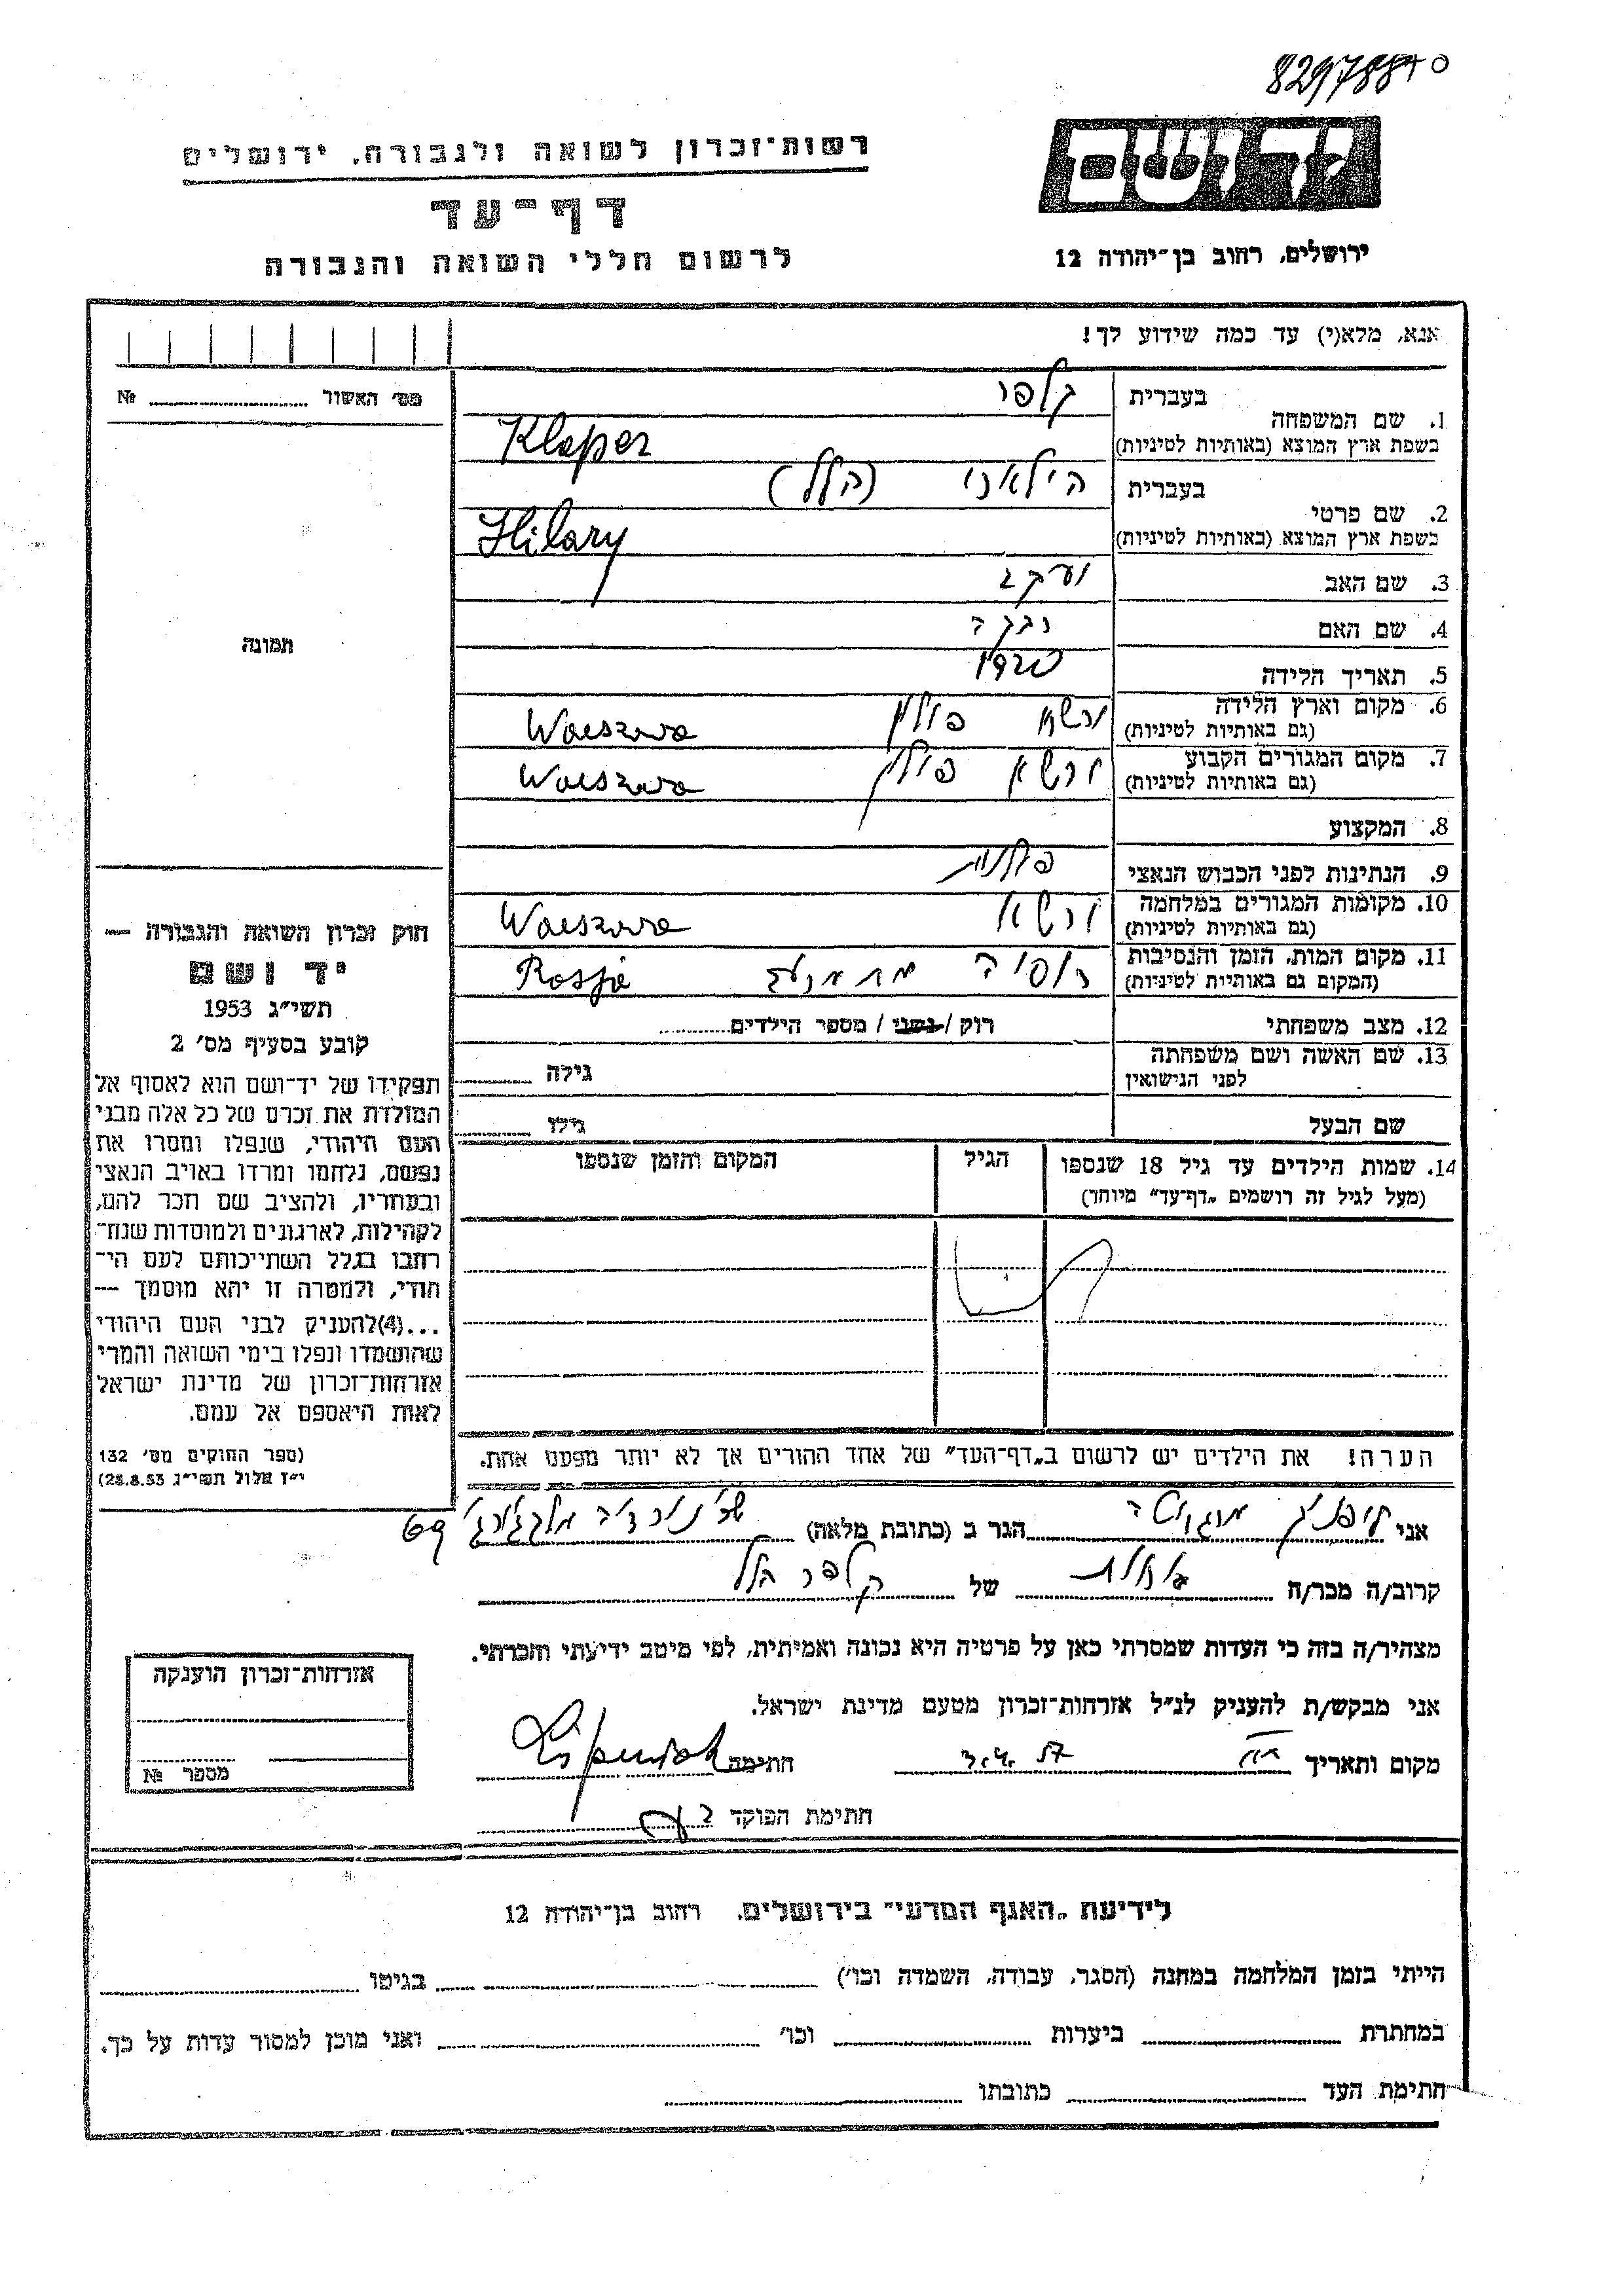 רשות־זכרון לשואה ולגבורה, ירושלים
יד ושם
דף־עד
לרשום חללי השואה והגבורה
ירושלים, רחוב בן־יהודה 12
אנא, מלא(י) עד כמה שידוע לך!
מס׳ האשור № 
1. שם המשפחה
בעברית קלפר
בשפת ארץ המוצא (באותיות לטיניות) Klaper
2. שם פרטי
בעברית הילארי (הלל)
בשפת ארץ המוצא (באותיות לטיניות) Hilary
3. שם האב יעקב
4. שם האם רבקה
5. תאריך הלידה 1920
6. מקום וארץ הלידה (גם באותיות לטיניות) ורשא פולין Warszawa
7. מקום המגורים הקבוע (גם באותיות לטיניות) ורשא פולין Warszawa
8. המקצוע
9. הנתינות לפני הכבוש הנאצי פולנית
10. מקומות המגורים במלחמה (גם באותיות לטיניות) ורשא Warszawa
11. מקום המות, הזמן והנסיבות (המקום גם באותיות לטיניות) רוסיה Rosja
12. מצב משפחתי רוק / נשוי / מספר הילדים
13. שם האשה ושם משפחתה לפני הנישואין גילה
שם הבעל גילו
14. שמות הילדים עד גיל 18 שנספו הגיל המקום והזמן שנספו
(מעל לגיל זה רושמים „דף־עד״ מיוחד)
הערה! את הילדים יש לרשום ב„דף־העד״ של אחד ההורים אך לא יותר מפעם אחת.
תמונה
חוק זכרון השואה והגבורה —
יד ושם
תשי״ג 1953
קובע בסעיף מס׳ 2
תפקידו של יד־ושם הוא לאסוף אל
המולדת את זכרם של כל אלה מבני
העם היהודי, שנפלו ומסרו את
נפשם, נלחמו ומרדו באויב הנאצי
ובעוזריו, ולהציב שם וזכר להם,
לקהילות, לארגונים ולמוסדות שנח־
רבו בגלל השתייכותם לעם הי־
הודי, ולמטרה זו יהא מוסמך —
...(4)להעניק לבני העם היהודי
שהושמדו ונפלו בימי השואה והמרי
אזרחות־זכרון של מדינת ישראל
לאות היאספם אל עמם.
(ספר החוקים מס׳ 132
י״ז אלול תשי״ג 28.8.53)
אני הגר ב (כתובת מלאה)
קרוב/ה מכר/ה של קלפר הלל
מצהיר/ה בזה כי העדות שמסרתי כאן על פרטיה היא נכונה ואמיתית, לפי מיטב ידיעתי והכרתי.
אני מבקש/ת להעניק לנ״ל אזרחות־זכרון מטעם מדינת ישראל.
מקום ותאריך חתימה
חתימת הפוקד
אזרחות־זכרון הוענקה
מספר №
לידיעת „האגף המדעי״ בירושלים, רחוב בן־יהודה 12
הייתי בזמן המלחמה במחנה (הסגר, עבודה, השמדה וכו׳) בגיטו
במחתרת ביערות וכו׳ ואני מוכן למסור עדות על כך.
חתימת העד כתובתו